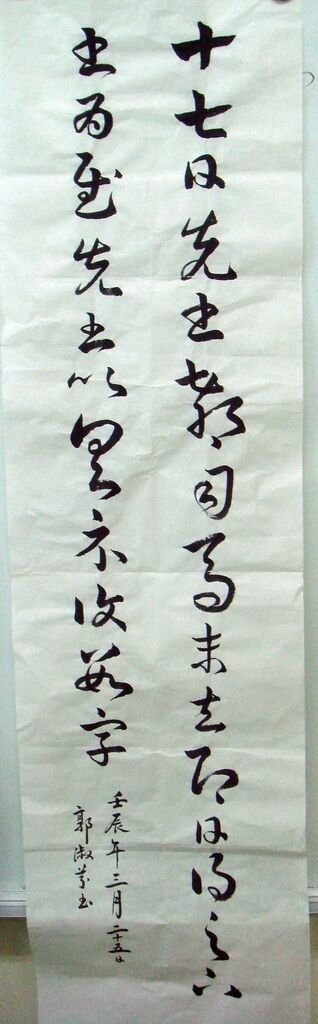 十七日先書郗司馬未去即日得足下
書為慰先書以具示復數字
壬辰年三月二十五日
郭淑芬書